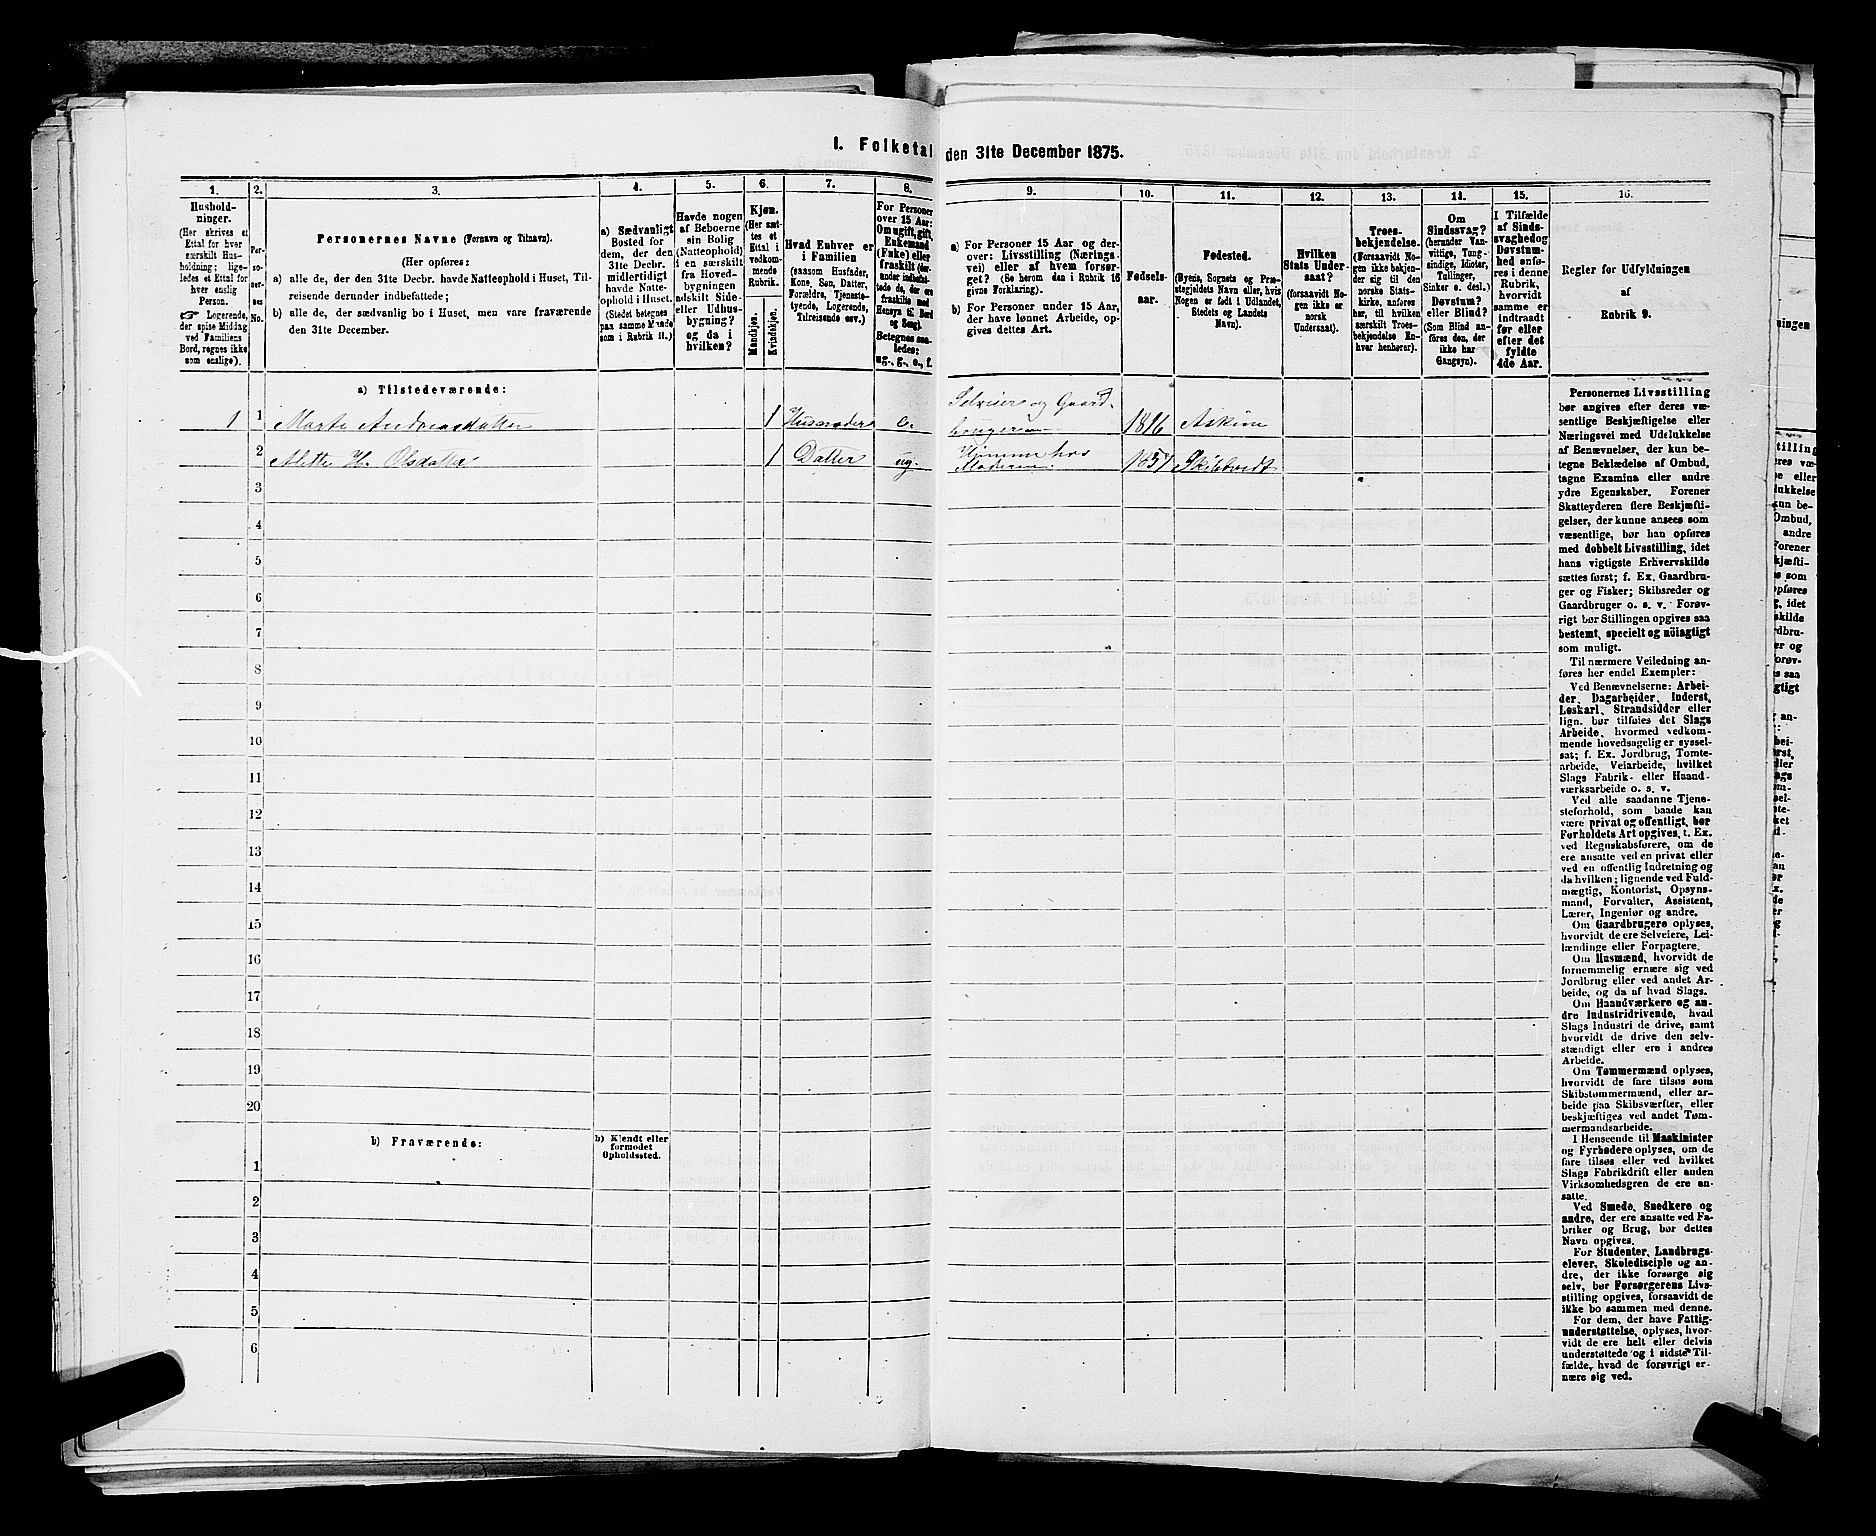 1. Folketal den 31te December 1875.
1.
2.
3.
4.
5.
6.
7.
8.
9.
10.
11.
12.
13.
14.
15.
16.
Hushold-
ninger.
(Her skrives et
Ettal for hver
særskilt Hus-
holdning; lige-
ledes et Ettal for
hver enslig
Person.
☞ Logerende,
der spise Middag
ved Familiens
Bord, regnes ikke
som enslige).
Per-
so-
ner-
nes
No.
Personernes Navne (Fornavn og Tilnavn).
(Her opføres:
a) alle de, der den 31te Decbr. havde Natteophold i Huset, Til-
reisende derunder indbefattede;
b) alle de, der sædvanlig bo i Huset, men vare fraværende
den 31te December.
a) Sædvanligt
Bosted for
dem, der den
31te Decbr.
midlertidigt
havde Natte-
ophold i Huset.
(Stedet betegnes
paa samme Maade
som i Rubrik 11.)
Havde nogen
af Beboerne
sin Bolig
(Natteophold)
i en særskilt
fra Hoved-
bygningen
adskilt Side-
eller Udhus-
bygning?
og da i
hvilken?
Kjøn.
(Her sæt-
tes et
Ettal i
vedkom-
mende
Rubrik.
Mandkjøn.
Kvindekjøn.
Hvad Enhver er
i Familien
(saasom Husfader,
Kone, Søn, Datter,
Forældre, Tjeneste-
tyende, Logerende,
Tilreisende osv.)
For Personer
over 15 Aar:
Om ugift, gift,
Enkemand
(Enke) eller
fraskilt (der-
under indbefat-
tede de, der ere
fraskilte med
Hensyn til Bord
og Seng).
Betegnes saa-
ledes:
ug., g., e., f.
a) For Personer 15 Aar og der-
over: Livsstilling (Nærings-
vei) eller af hvem forsør-
get? (Se herom den i Rubrik 16
givne Forklaring).
b) For Personer under 15 Aar,
der have lønnet Arbeide, op-
gives dettes Art.
Fødsels-
aar.
Fødested.
(Byens, Sognets og Præ-
stegjeldets Navn eller, hvis
Nogen er født i Udlandet,
Stedets og Landets
Navn).
Hvilken
Stats Under-
saat?
(forsaavidt No-
gen ikke er
norsk
Undersaat).
Troes-
bekjendelse.
(Forsaavidt No-
gen ikke bekjen-
der sig til den
norske Stats-
kirke, anføres
her, til hvilken
særskilt Troes-
bekjendelse En-
hver henhører).
Om
Sindssvag?
(herunder Van-
vittige, Tung-
sindige, Idioter,
Tullinger,
Sinker o. desl.)
Døvstum?
eller Blind?
(Som Blind an-
føres den, der
ikke har
Gangsyn).
I Tilfælde
af Sinds-
svaghed og
Døvstum-
hed anfø-
res i denne
Rubrik,
hvorvidt
samme er
indtraadt
før eller
efter det
fyldte
4de Aar.
Regler for Udfyldningen
af
Rubrik 9.
a) Tilstedeværende:
1 1 Marte Andreasdatter 1 Husmoder e. Selveier og Gaard-
brugerm 1816 Askim
2 Alette H. Olsdatter 1 Datter ug. Hjemme hos
Moderen 1857 Skibtvedt
3
4
5
6
7
8
9
10
11
12
13
14
15
16
17
18
19
20
b) Fraværende:
b) Kjendt eller
formodet
Opholdssted.
1
2
3
4
5
6
Personernes Livsstilling
bør angives efter deres væ-
sentlige Beskjæftigelse eller
Næringsvei med Udelukkelse
af Benævnelser, der kun be-
tegne Beklædelse af Ombud,
tagne Examina eller andre
ydre Egenskaber. Forener
Skatteyderen flere Beskjæfti-
gelser, der kunne ansees som
væsentlige, bør han opføres
med dobbelt Livsstilling, idet
hans vigtigste Erhvervskilde
sættes først; f. Ex. Gaardbru-
ger og Fisker; Skibsreder og
Gaardbruger o. s. v. Forøv-
rigt bør Stillingen opgives saa
bestemt, specielt og nøiagtigt
som muligt.
Til nærmere Veiledning an-
føres her endel Exempler:
Ved Benævnelserne: Arbei-
der, Dagarbeider, Inderst,
Løskarl, Strandsidder eller
lign. bør tilføies det Slags
Arbeide, hvormed vedkom-
mende hovedsagelig er syssel-
sat; f. Ex. Jordbrug, Tomte-
arbeide, Veiarbeide, hvilket
Slags Fabrik- eller Haand-
værksarbeide o. s. v.
Ved alle saadanne Tjene-
steforhold, som baade kan
være privat og offentligt, bør
Forholdets Art opgives, t. Ex.
ved Regnskabsførere, om de
ere ansatte ved en privat eller
ved en offentlig Indretning og
da hvilken; lignende ved Fuld-
mægtig, Kontorist, Opsyns-
mand, Forvalter, Assistent,
Lærer, Ingeniør og andre.
Om Gaardbrugere oplyses,
hvorvidt de ere Selveiere, Lei-
lændinge eller Forpagtere.
Om Husmænd, hvorvidt de
fornemmelig ernære sig ved
Jordbrug eller ved andet Ar-
beide, og da af hvad Slags.
Om Haandværkere og an-
dre Industridrivende, hvad
Slags Industri de drive, samt
hvorvidt de drive den selv-
stændigt eller ere i andres
Arbeide.
Om Tømmermænd oplyses,
hvorvidt de fare tilsøs som
Skibstømmermænd, eller ar-
beide paa Skibsværfter, eller
beskjæftiges ved andet Tøm-
mermandsarbeide.
I Henseende til Maskinister
og Fyrbødere oplyses, om de
fare tilsøs eller ved hvilket
Slags Fabrikdrift eller anden
Virksomhedsgren de ere an-
satte.
Ved Smede, Snedkere og
andre, der ere ansatte ved Fa-
briker og Brug, bør dettes
Navn opgives.
For Studenter, Landbrugs-
elever, Skoledisciple og an-
dre, der ikke forsørge sig
selv, bør Forsørgerens Livs-
stilling opgives, forsaavidt de
ikke bo sammen med denne.
For dem, der have Fattig-
understøttelse, oplyses, hvor-
vidt de ere helt eller delvis
understøttede og i sidste Til-
fælde, hvad de forøvrigt er-
nære sig ved.